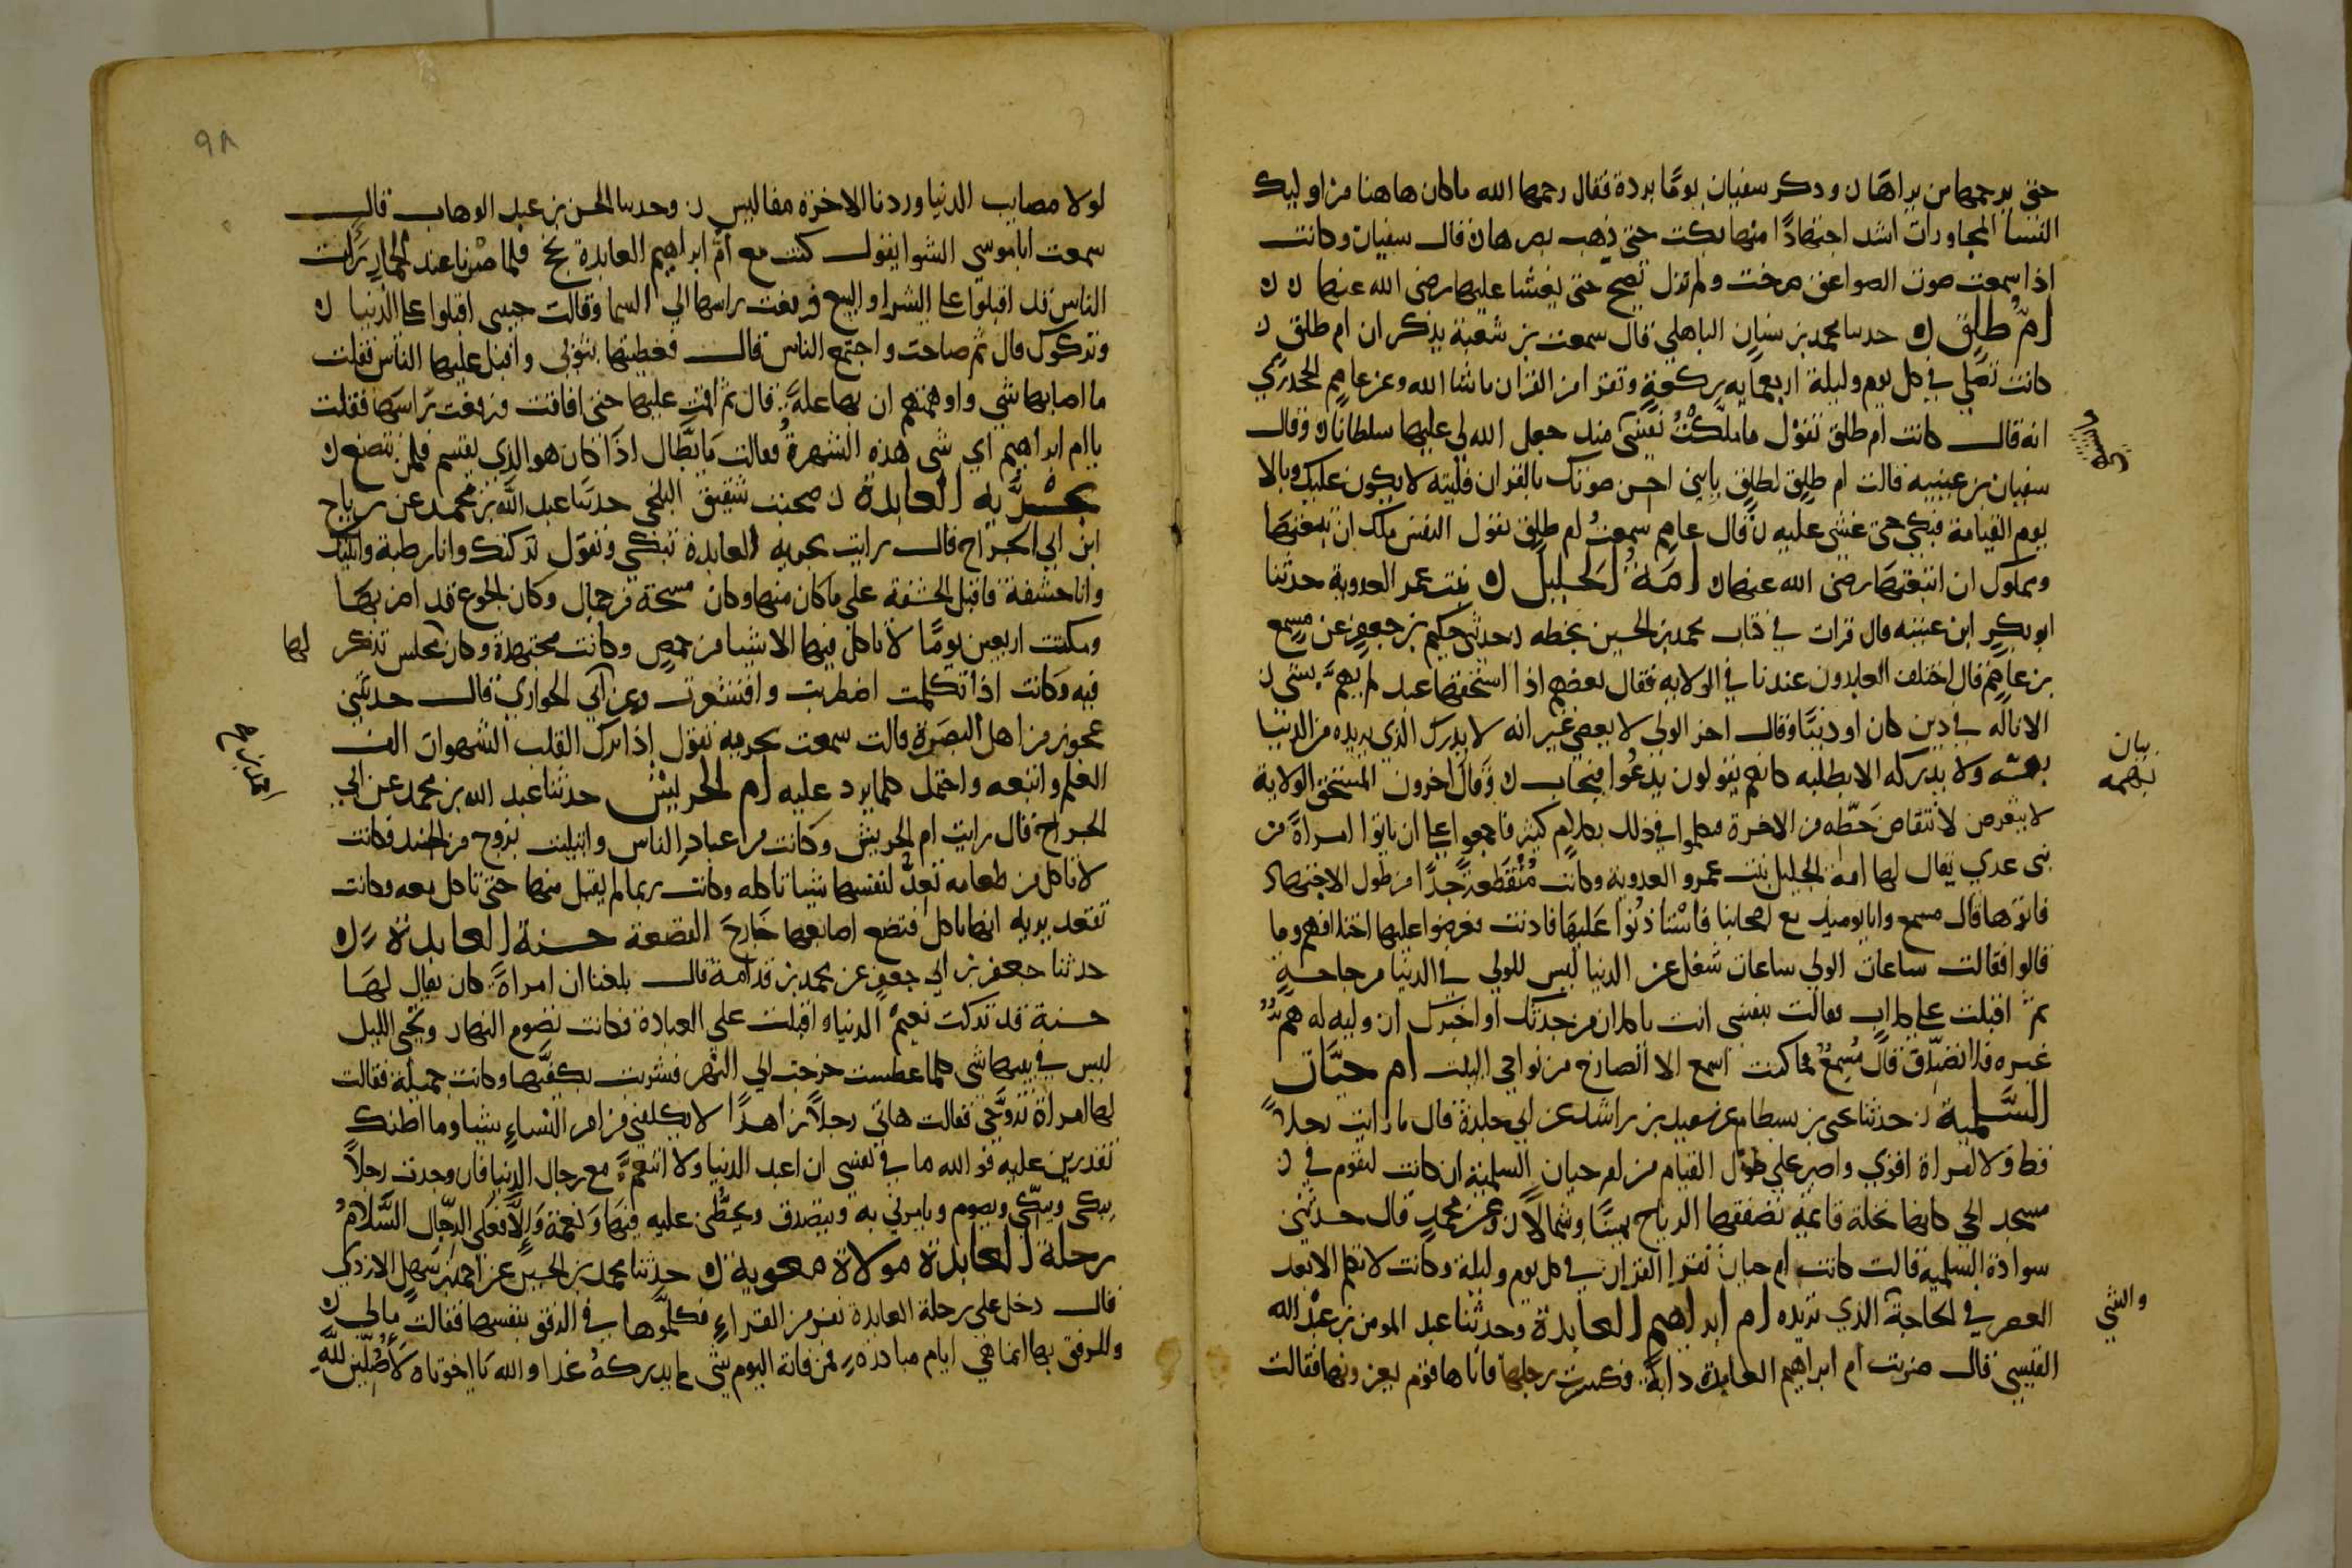 حتى يرحمها من يراها ن وذكر سفيان يوما بردة فقال رحمها الله ما كان هاهنا من اوليك
النسا المجاورات اشد اجتهادا منها بكت حتى ذهب بصرها ن قال سفيان وكانت
اذا سمعت صوت الصواعق صرخت ولم تزل تصيح حتى يغشا عليها رضى الله عنها ن ن
ام طلق ن حدثنا محمد بن سنان الباهلي قال سمعت بن شعبة يذكر ان ام طلق ن
كانت تصلي في كل يوم وليلة اربعمايه ركعة وتقرا من القران ما شا الله وعن عاصم الجحدري
انه قال كانت ام طلق تقول ما ملكت نفسى منذ جعل الله لي عليها سلطانا ن وقال
سفيان بن عيينه قالت ام طلق لطلق يا بني احسن صوتك بالقران فليته لا يكون عليك وبالا
يوم القيامة فبكى حتى غشى عليه ن قال عاصم سمعت ام طلق تقول النفس ملك ان تبعتها
ومملوك ان اتبعتها رضى الله عنها ن امة الجليل ن بنت عمر العدوية حدثنا
ابو بكر ابن عيينه قال قرات في كتاب محمد بن الحسين بخطه ن حدثنى حكيم بن جعفر عن مسمع
بن عاصم قال اختلف العابدون عندنا في الولايه فقال بعضهم اذا استحقها عبد لم يهم بشى ن
الا ناله في دين كان او دنيا وقال اخر الولى لا يعصى غير انه لا يدرك الذي يريده من الدنيا
بهمته ولا يدركه الا بطلبه كانهم يقولون يدعوا فيجاب ن وقال اخرون المستحق الولاية
لا يتعرض لانتقاص حظه من الاخرة فتكلموا في ذلك بكلام كثير فاجمعوا على ان ياتوا امراة من
بنى عدي يقال لها امة الجليل بنت عمرو العدوية وكانت منقطعة جدا من طول الاجتهاد
فاتوها قال مسمع وانا يوميذ مع اصحابنا فاستاذنوا عليها فاذنت فعرضوا عليها اختلافهم وما
قالوا فقالت ساعات الولي ساعات شغل عن الدنيا ليس للولي في الدنيا من حاجة
ثم اقبلت على كلاب فقالت بنفسى انت يا كلاب من حدثك او اخبرك ان وليه له هم
غيره فلا تصدق قال مسمع فما كنت اسمع الا الصارخ من نواحي البيت ام حيان
السلمية ن حدثنا يحيى بن بسطام عن سعيد بن راشد عن ابي خلدة قال ما رايت رجلا
قط ولا امراة اقوى واصبر على طول القيام من ام حيان السلمية ان كانت لتقوم في ن
مسجد الحي كانها نخلة قائمة تصفقها الرياح يمينا وشمالا ن وعن محمد قال حدثتنى
سوادة السلمية قالت كانت ام حيان تقرا القران في كل يوم وليلة وكانت لا تكلم الا بعد
العصر في الحاجة الذي تريده ام ابراهيم العابدة وحدثنا عبد المومن بن عبد الله
القيسى قال ضربت ام ابراهيم العابدة دابة فكسرت رجلها فاتاها قوم يعزونها فقالت
بيان
بهمه
والشى
٩٨
لولا مصايب الدنيا وردنا الاخرة مفاليس ن وحدثنا الحسن بن عبد الوهاب قال
سمعت ابا موسي الشوا يقول كنت مع ام ابراهيم العابدة بحج فلما صرنا عند الجمار رات
الناس قد اقبلوا على الشرا والبيع فرفعت راسها الى السما وقالت حبيبى اقبلوا على الدنيا ن
وتركوك قال ثم صاحت واجتمع الناس قال فغطيتها بثوبى واقبل عليها الناس فقلت
ما اصابها شى واوهمتهم ان بها علة قال ثم اقمت عليها حتى افاقت فرفعت راسها فقلت
يا ام ابراهيم اي شى هذه الشهرة فقالت يا بطال اذا كان هو الذي يقسم فلمن تتصنع ن
بحرية العابدة ن صحبت شقيق البلخى حدثنا عبد الله بن محمد عن رياح
ابن ابي الجراح قال رايت بحريه العابدة تبكي وتقول تركتك وانا رطبة واتيتك
وانا حشفة فاقبل الحشفة على ما كان منها وكان مسحة من جمال وكان الجوع قد اضر بها
ومكثت اربعين يوما لا تاكل فيها الا شيا من حمص وكانت مجتهدة وكان مجلس تذكر لها
فيه وكانت اذا تكلمت اضطربت واقشعرت وعن ابي الحواري قال حدثتنى
عجوز من اهل البصرة قالت سمعت بحريه تقول اذا ترك القلب الشهوات الف
العلم واتبعه واحتمل كلما يرد عليه ام الحريش حدثنا عبد الله بن محمد عن ابي
الجراح قال رايت ام الحريش وكانت من عباد الناس وابتليت بزوج من الجند فكانت
لا تاكل من طعامه تعد لنفسها شيا تاكله وكانت ربما لم يقبل منها حتى تاكل معه وكانت
تقعد يريه انها تاكل فتضع اصابعها خارج القصعة حسنة العابدة ن
حدثنا جعفر بن ابي جعفر عن محمد بن قدامة قال بلغنا ان امراة كان يقال لها
حسنة قد تركت نعيم الدنيا واقبلت على العبادة فكانت تصوم النهار وتحي الليل
ليس في بيتها شى كلما عطشت خرجت الي النهر فشربت بكفيها وكانت جميلة فقالت
لها امراة تزوجى فقالت هاتي رجلا زاهدا لا يكلفنى من امر النساء شيا وما اظنك
تقدرين عليه فوالله ما في نفسى ان اعبد الدنيا ولا اتنعم مع رجال الدنيا فان وجدت رجلا
يبكى ويبكى ويصوم ويامرني به ويتصدق ويحظنى عليه فبها ونعمة والا فعلى الرجال السلام
رحلة العابدة مولاة معوية ن حدثنا محمد بن الحسين عن احمد بن سهل الازدي
قال دخل على رحلة العابدة نفر من القراء فكلموها في الرفق بنفسها فقالت مالي ن
وللرفق بها انما هي ايام مبادرة فمن فاته اليوم شى لم يدركه غدا والله يا اخوتاه لاصلين لله